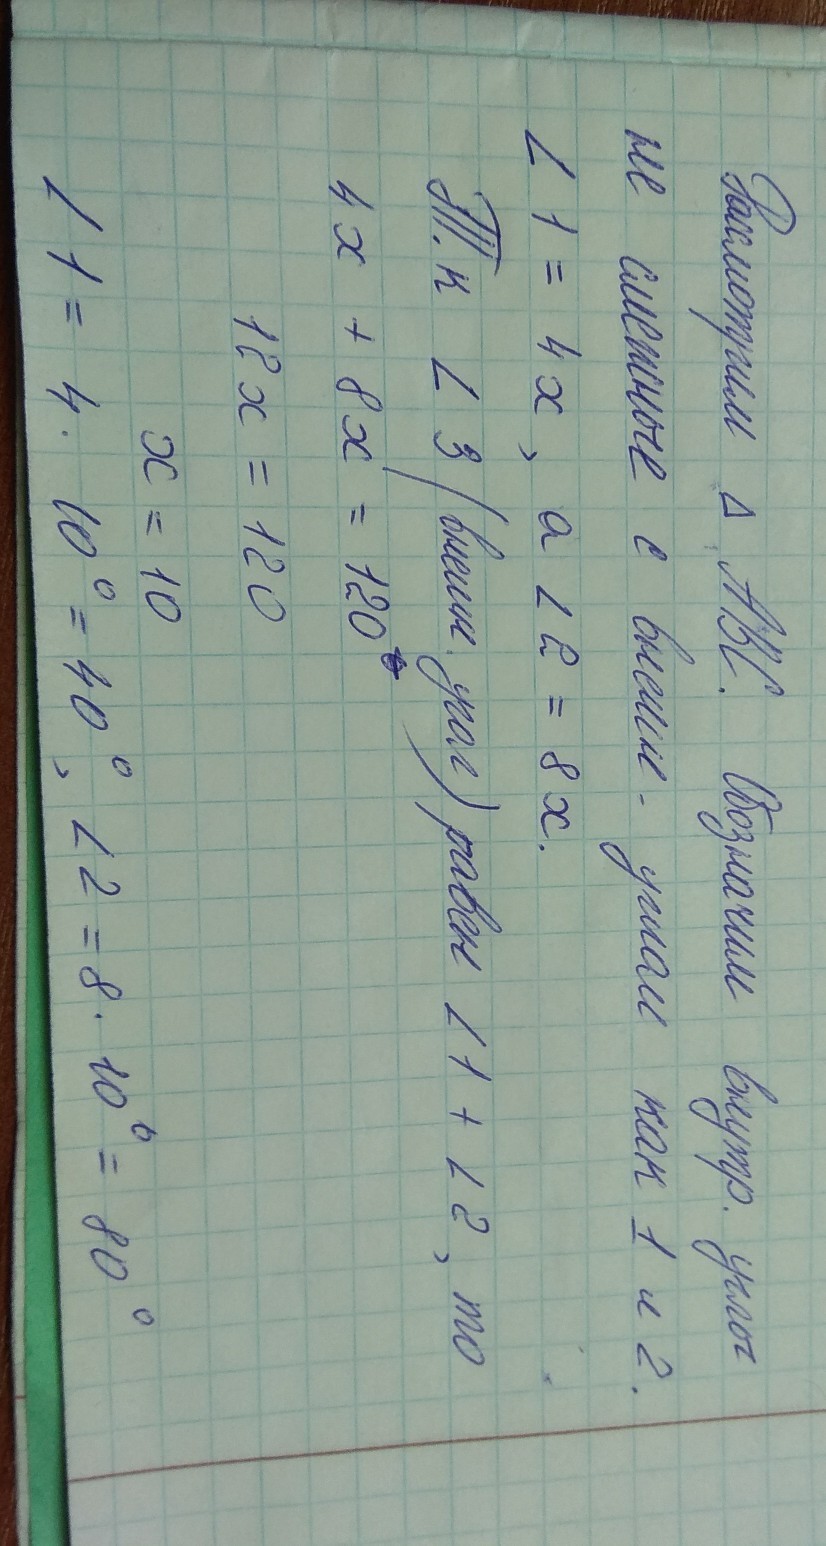 Рассмотрим Δ ABC. Обозначим внутр. углы
не смежные с внешн. углам как 1 и 2.
∠1 = 4x, а ∠2 = 8x.
Т.к ∠3 (внешн. угол) равен ∠1 + ∠2, то
4x + 8x = 120°
12x = 120
x = 10
∠1 = 4 · 10° = 40°, ∠2 = 8 · 10° = 80°